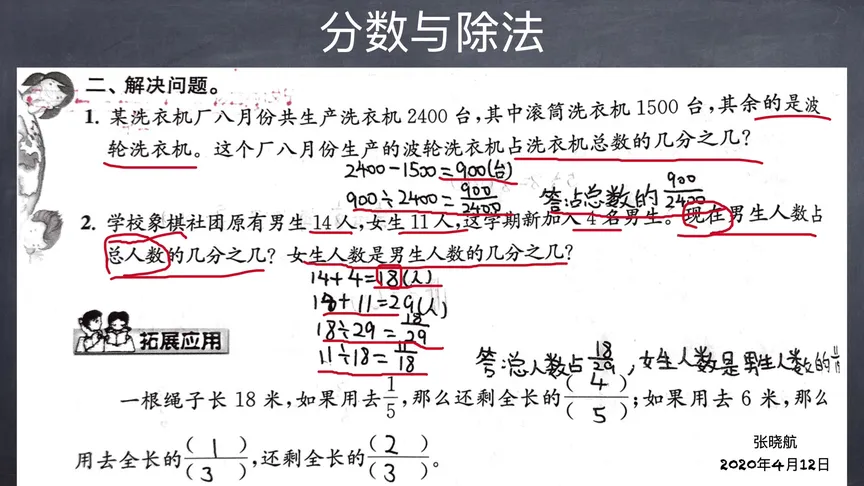 分数与除法
二、解决问题。
1. 某洗衣机厂八月份共生产洗衣机 2400 台,其中滚筒洗衣机 1500 台,其余的是波
轮洗衣机。这个厂八月份生产的波轮洗衣机占洗衣机总数的几分之几?
2400-1500=900(台)
900÷2400=900/2400 答:占总数的900/2400
2. 学校象棋社团原有男生 14 人,女生 11 人,这学期新加入 4 名男生。现在男生人数占
总人数的几分之几? 女生人数是男生人数的几分之几?
14+4=18(人)
18+11=29(人)
18÷29=18/29
11÷18=11/18
答:总人数占18/29,女生人数是男生人数的11/18
拓展应用
一根绳子长 18 米,如果用去1/5,那么还剩全长的(4)/(5);如果用去 6 米,那么
用去全长的(1)/(3),还剩全长的(2)/(3)。
张晓航
2020年4月12日